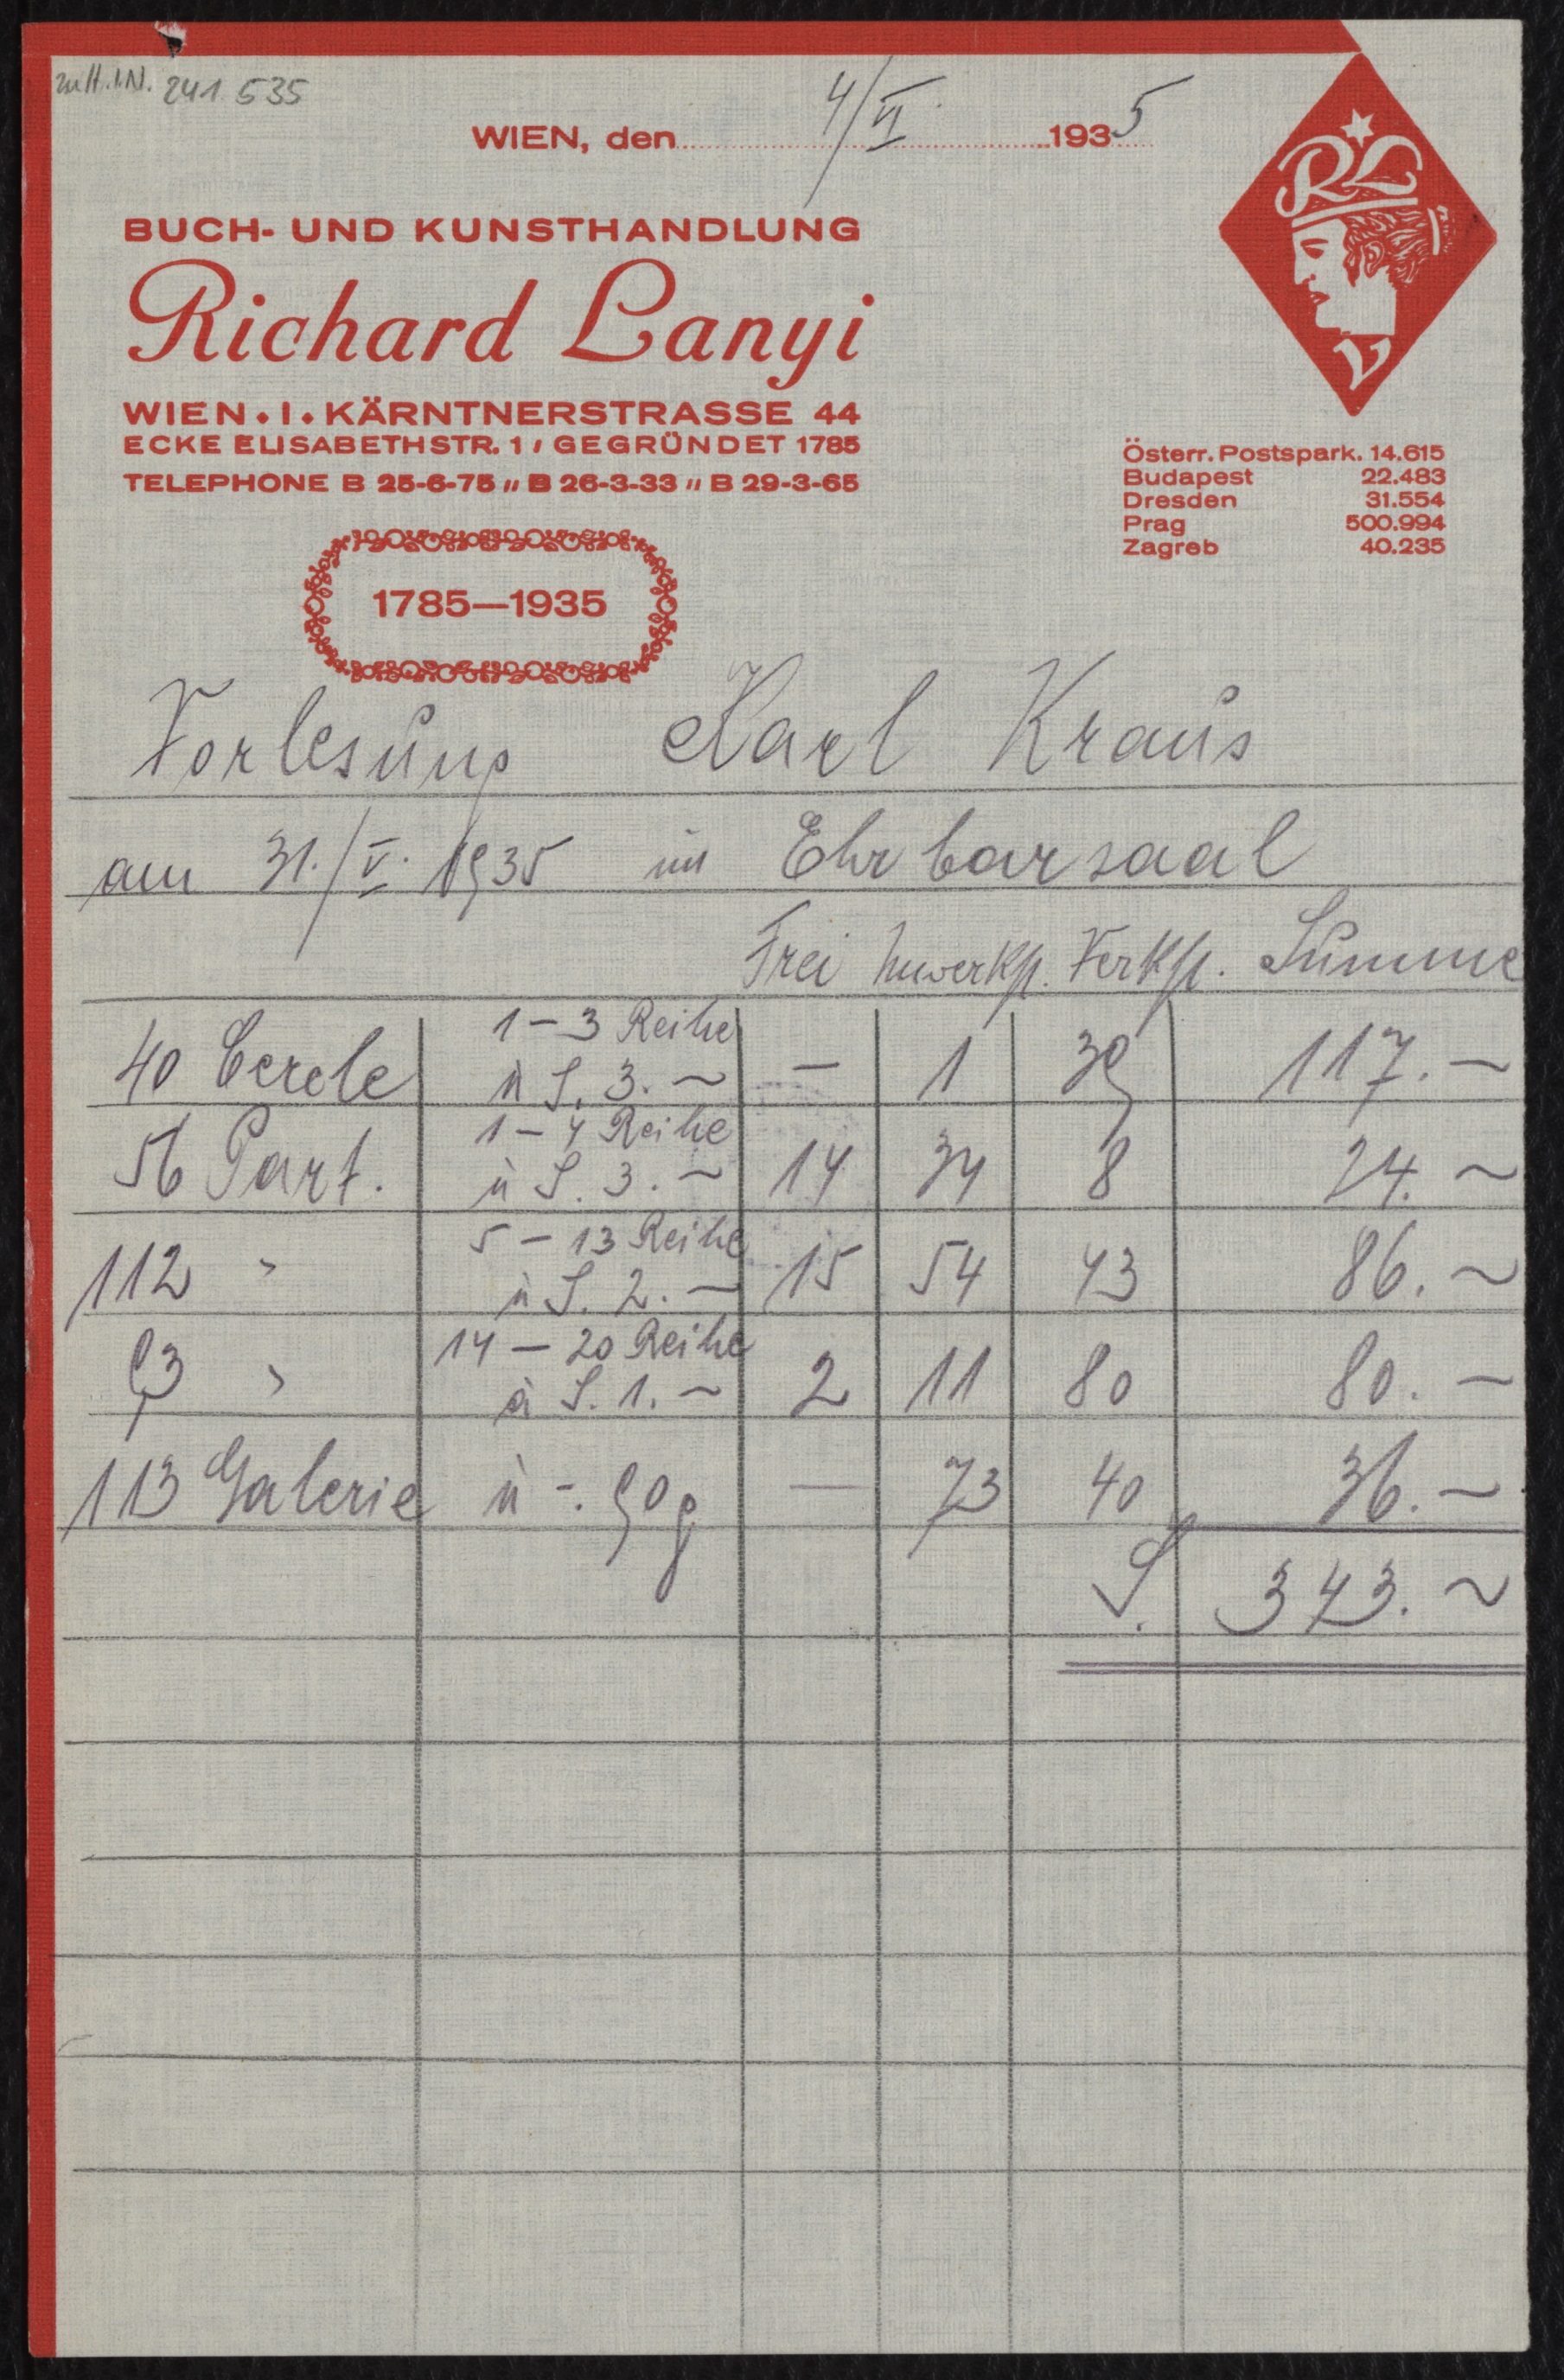 zu H.I.N. 241.535
WIEN, den 4/VI. 1935
RL
V
BUCH- UND KUNSTHANDLUNG
Richard Lanyi
WIEN • I • KÄRNTNERSTRASSE 44
ECKE ELISABETHSTR. 1 / GEGRÜNDET 1785
TELEPHONE B 25-6-75 // B 26-3-33 // B 29-3-65
Österr. Postspark. 14.615
Budapest 22.483
Dresden 31.554
Prag 500.994
Zagreb 40.235
1785—1935
Vorlesung Karl Kraus
am 31./V. 1935 im Ehrbarsaal
Frei Unverkft. Verkft. Summe
40 Cercle 1–3 Reihe à S. 3.– — 1 39 117.–
56 Part. 1–4 Reihe à S. 3.– 14 34 8 24.–
112 " 5–13 Reihe à S. 2.– 15 54 43 86.–
93 " 14–20 Reihe à S. 1.– 2 11 80 80.–
113 Galerie à –.90 g — 73 40 36.–
S. 343.–